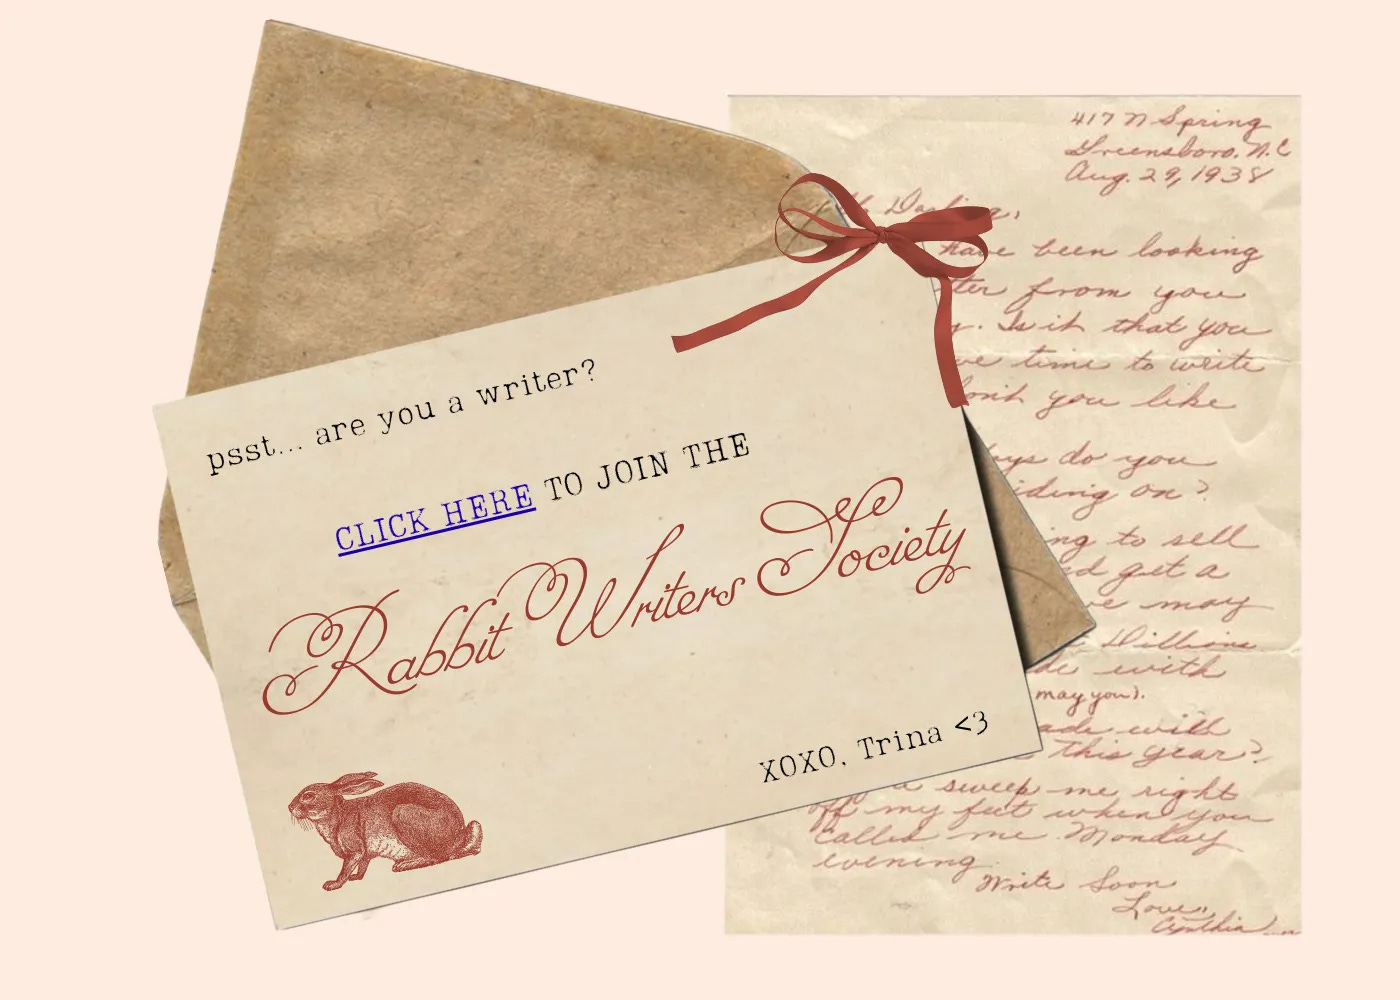 psst... are you a writer?
CLICK HERE TO JOIN THE
Rabbit Writers Society
XOXO, Trina <3
417 N Spring
Greensboro, N.C
Aug. 29, 1938
Darling,
have been looking
from you
Is it that you
time to write
you like
do you
on?
to sell
get a
may
Williams
with
may you).
with
this year?
sweep me right
off my feet when you
called me Monday
evening
Write Soon
Love,
Cynthia